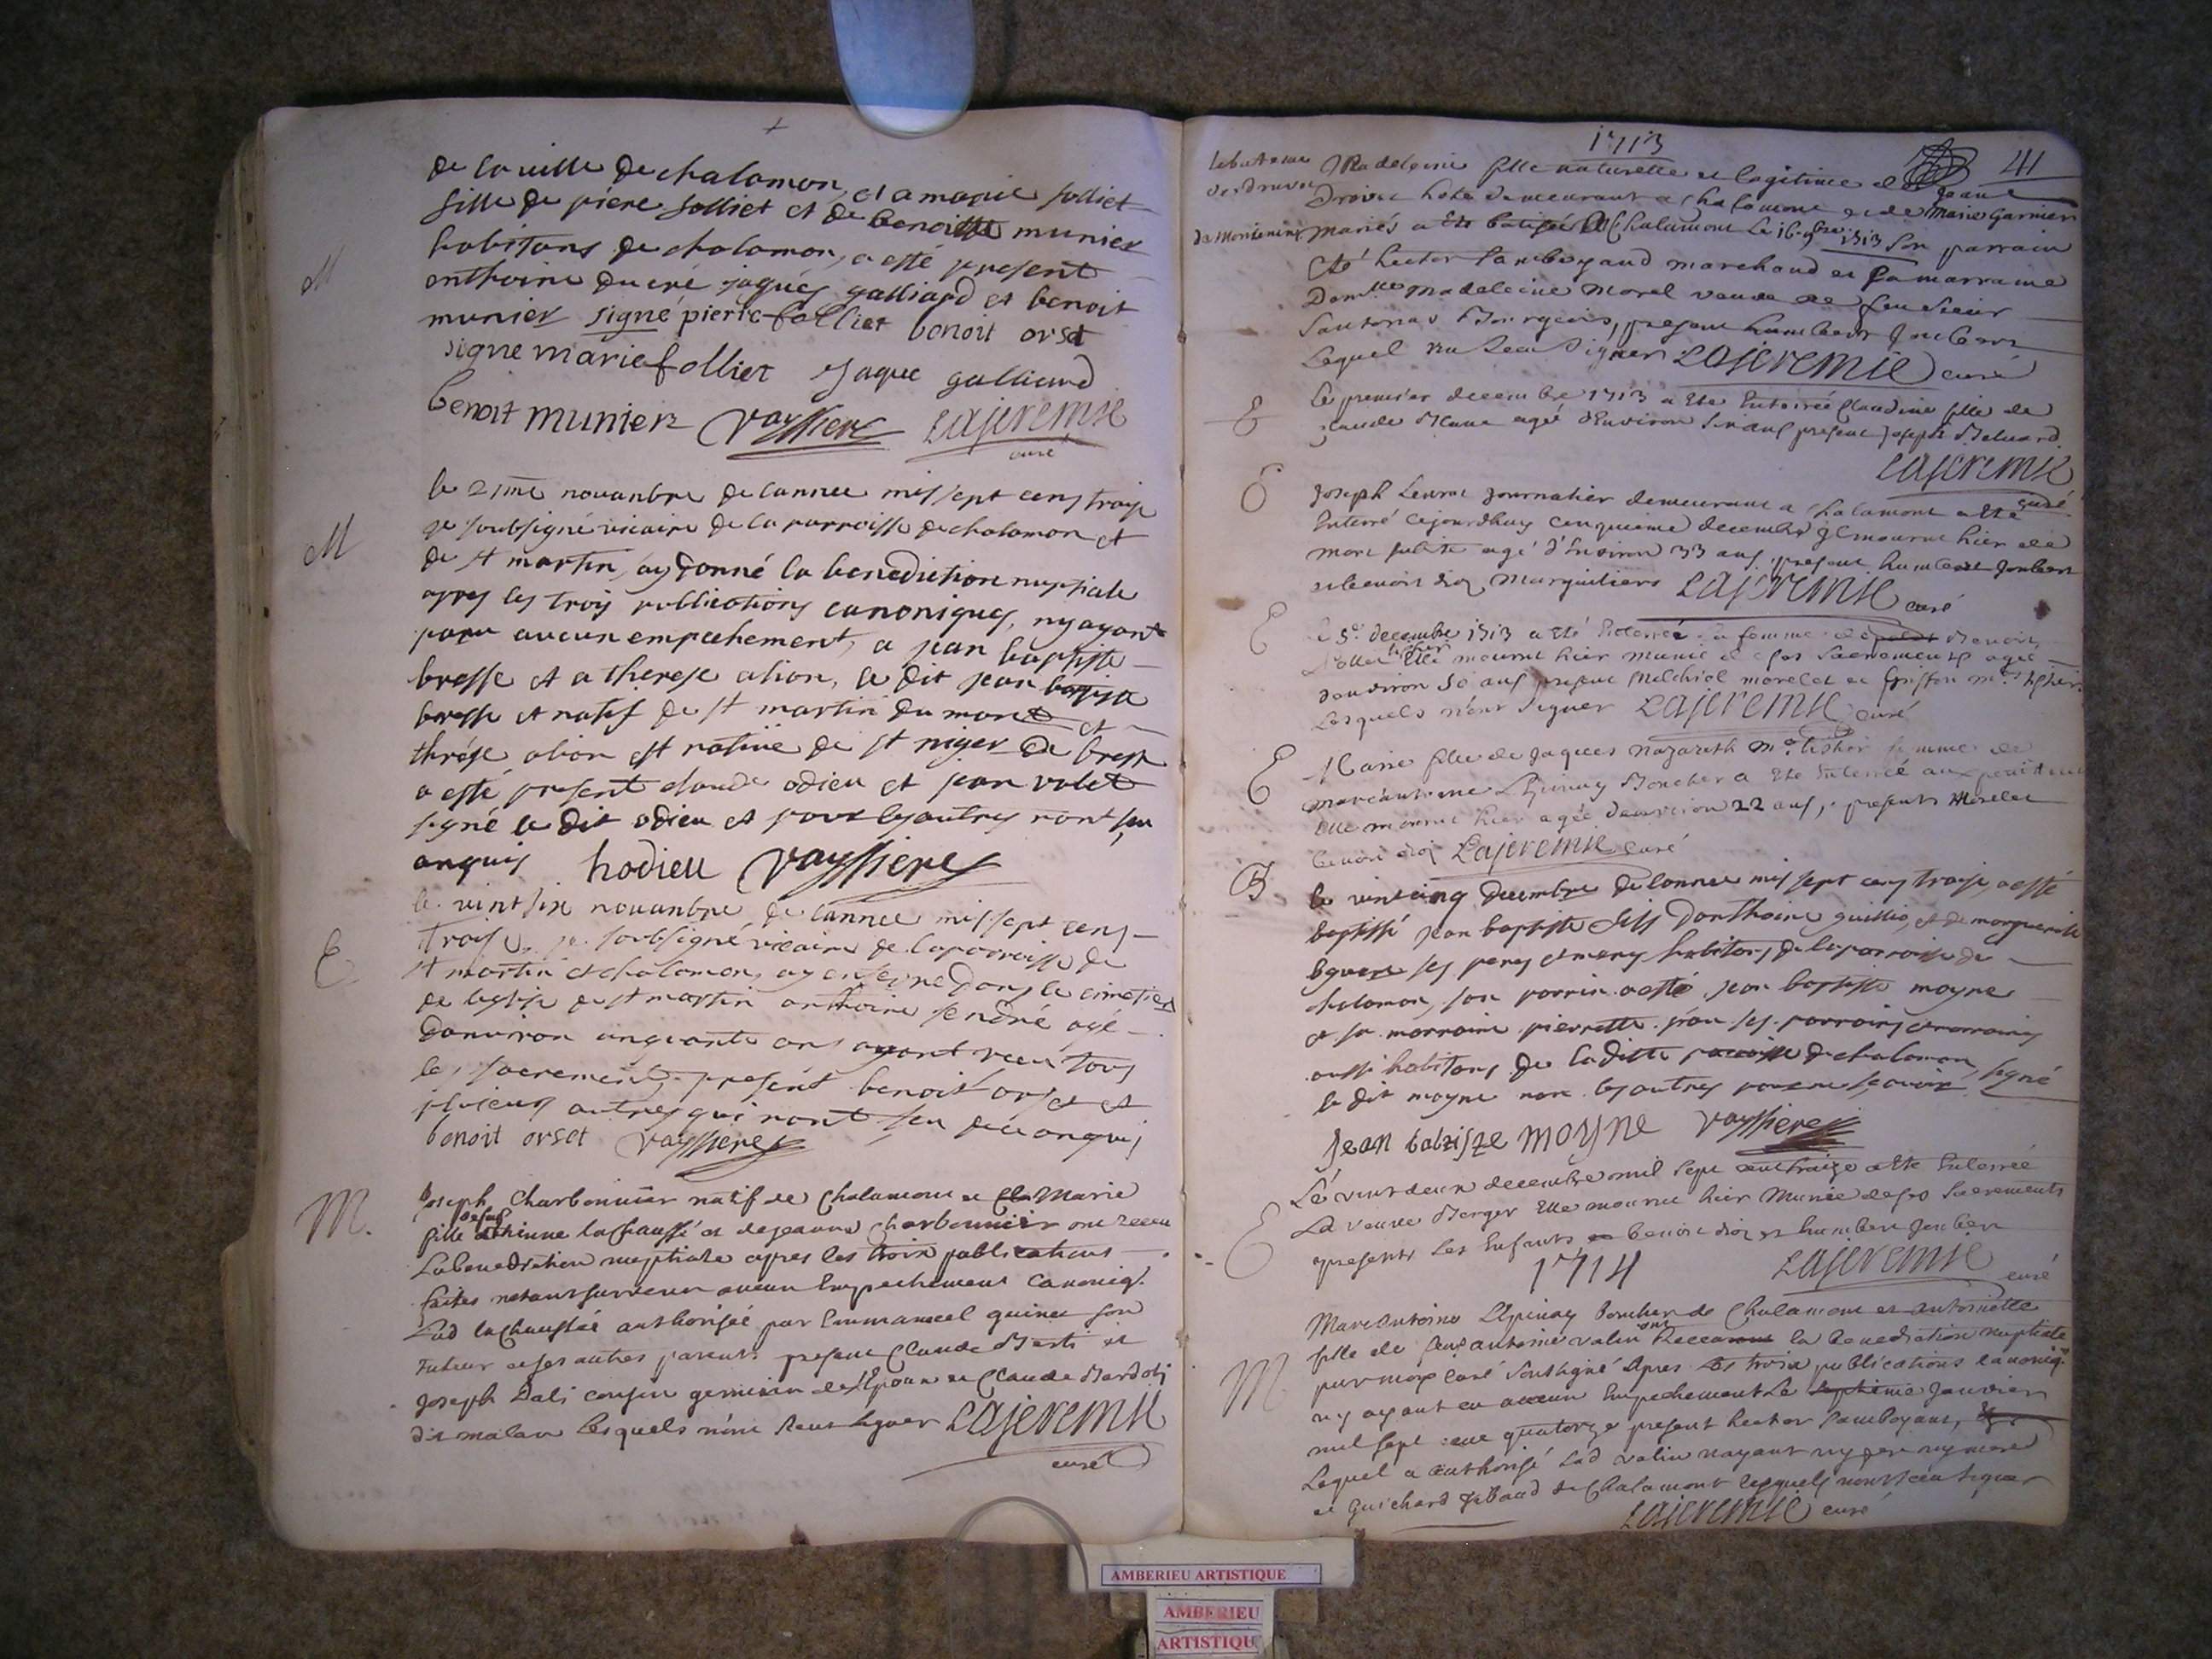 de la ville de chalamon, et a marie folliet
fille de piere folliet et de benoitte munier
habitans de chalamon, a esté present
anthoine ducré jaques galliard et benoit
munier signé pierre folliet benoit orset
signe marie folliet Jaque galliard
benoit munier Vayssiere Lajeremie
curé
M
le 2sme novanbre de lannee mil sept cens traise
M
je soubsigné vicaire de la parroisse de chalamon et
de st martin, ay donné la benediction nuptiale
apres les trois publications canoniques, ny ayant
paru aucun empechement, a jean baptiste
bresse et a therese alion, le dit jean baptiste
bresse et natif de st martin du mont et
thrése alion est native de st niger de bresse
a esté present claude odieu et jean volet
signé le dit odieu et pour les autres nont seu
enquis hodieu Vayssieres
le vint six novanbre de lannee mil sept cens
traise, je soubsigné vicaire de la parroisse de
E
st martin et chalamon, ay enterré dans le cimetiere
de leglise de st martin anthoine fendré agé
danviron cinquante ans ayant receu tous
les sacrements present benoit orset et
plusieurs autres qui nont seu de ce enquis
benoit orset Vayssieres
M.
Joseph Charbonnier natif de Chalamont et Marie
defunt
fille Ethienne lachaussé et de jeanne Charbonnier ont receu
La benediction nuptiale apres les trois publications
faites netant survenu aucun Empechement Canoniq.
Lad lachaussée authorisée par Emmanuel guinet son
Tuteur et ses autres parents present Claude Berti et
Joseph Dali cousin germain de l'Epoux et Claude Bardoli
dit malan lesquels n'ont seut signer Lajeremie
curé
1713
41
le bateme
de drivet
de Montening
Madeleine fille naturelle et legitime de Jean
Drivet hote demeurant a Chalamont et de Marie Garnier
mariés a Ete batisée a Chalamont le 16 9bre 1713 Son parrain
Eté hector Pamboyaud marchand et sa marraine
Damlle Madeleine Morel veuve de feu Sieur
Santonas Bourgeois, present humbert Joubert
Lequel na seu signer Lajeremie curé
E
Le premier decembre 1713 a Ete Enterrée Claudine fille de
Claude agé d'Environ Six ans present Joseph Beluard
Lajeremie
curé
E
Joseph journalier demeurant a Chalamont a Ete
Enterré cejourdhuy cinquieme decembre Il mourut hier de
mort subite agé d'Environ 33 ans, present humbert Joubert
et benoit dioz marguiliers Lajeremie curé
E
Le 5e decembre 1713 a Eté Enterrée la femme de benoit
Elle mourut hier munie de ses Sacrements agée
denviron 50 ans present Melchiol morelet et Griffon
Lesquels n'ont signer Lajeremie curé
E
Marie fille de Jaques Nazareth me tissier femme de
marcantoine Lepinay Boucher a Ete Enterrée
Elle mourut hier agée denviron 22 ans, presents Morelet
benoit dioz Lajeremie curé
B
le vintcinq decembre de lannee mil sept cens traise, a esté
baptissé jean baptiste fils danthoine guillio, et de marguerite
ses peres et meres habitans de la parroisse de
chalamon, son parrin a esté jean baptiste moyne
et sa marraine pierrette ses parrains et marraines
aussi habitans de laditte parroisse de chalamon, signé
le dit moyne non les autres pour ne scavoir
Jean batiste moyne Vayssieres
E
Le vint deux decembre mil Sept cent traize a Ete Enterrée
La veuve Berger Elle mourut hier Munie de ses Sacrements
presents Les Enfants benoit dioz et humbert Joubert
1714
Lajeremie
curé
M
Marcantoine Lepinay boucher de Chalamont et antoinette
fille de feu antoine valin ont Receu la benediction nuptiale
par moy curé soussigné apres les trois publications canoniq.
ny ayant eu aucun Empechement Le septieme Janvier
mil sept cent quatorze present hector Pamboyaut,
Lequel a authorisé Lad valin nayant ny pere ny mere
et Guichard Gibaud de Chalamont lesquels nont sceu signer
Lajeremie curé
AMBERIEU ARTISTIQUE
AMBERIEU
ARTISTIQU